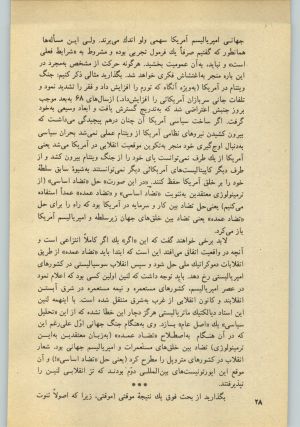 جهانی امپریالیسم آمریکا سهمی ولو اندک می‌برند. ولی این مسأله‌ها
همانطور که گفتیم صرفاً یک فرمول تجربی بوده و مشروط به «شرایط فعلی
است» و نباید، به‌آن عمومیت بخشید. هرگونه حرکت از مشخص به‌مجرد در
این باره منجر به‌اغتشاش فکری خواهد شد. بگذارید مثالی ذکر کنیم، جنگ
در ویتنام آمریکا (به‌ویژه آنگاه که تورم را افزایش داد و فقر را تشدید نمود و
تلفات جانی سربازان آمریکائی را افزایش‌داد.) ازسال‌های ۶۸ به‌بعد موجب
بروز جنبش اعتراضی شد که به‌تدریج گسترش یافت و ابعاد وسیعی به‌خود
گرفت. اگر ساخت سیاسی آمریکا آن چنان درهم پیچیدگی می‌داشت که
بیرون کشیدن نیروهای نظامی آمریکا از ویتنام عملی نمی‌شد بحران سیاسی
به‌دنبال اوج‌گیری خود منجر به‌تکوین موقعیت انقلابی در آمریکا می‌شد یعنی
آمریکا از یک طرف نمی‌توانست پای خود را از جنگ ویتنام بیرون کشد و از
طرف دیگر کاپیتالیست‌های آمریکائی دیگر نمی‌توانستند به‌شیوهٔ سابق سلطهٔ
خود را بر خلق آمریکا حفظ کنند. «در این صورت» حل «تضاد اساسی» (از
ترمینولوژی معتقدین به‌تئوبت «تضاد اساسی» و «تضاد عمده» عمداً استفاده
می‌کنیم) یعنی‌حل تضاد بین کار و سرمایه در آمریکا بود که راه را برای حل
«تضاد عمده» یعنی تضاد بین خلق‌های جهان زیرسلطه و امپریالیسم آمریکا
باز می‌کرد.
لابد برخی خواهند گفت که این «اگر» یک اگر کاملاً انتزاعی است و
آنچه در واقعیت اتفاق می‌افتد این است که ابتدا باید «تضاد عمده» از طریق
انقلابات دموکراتیک ملی حل شود و سپس انقلاب سوسیالیستی در کشورهای
امپریالیستی رخ دهد. باید توجه داشت که لنین اولین کسی بود که اعلام نمود
در عصر امپریالیسم، کشورهای مستعمره و نیمه مستعمره در شرق آبستن
انقلابند و کانون انقلابی از غرب به‌شرق منتقل شده است. با اینهمه لنین
این استاد دیالکتیک ماتریالیستی هرگز دچار این خطا نشده که از این «تحلیل
سیاسی» یک «اصل عام» بسازد. وی به‌هنگام جنگ جهانی اول علی‌رغم این
که در آن هنگام به‌اصطلاح «تضاد عمده» (به‌زبان معتقدین به‌این
ترمینولوژی) تضاد بین خلق‌های مستعمرات و امپریالیسم جهانی بود، شعار
انقلاب در کشورهای متروپل را مطرح کرد (یعنی حل «تضاد اساسی»!) و آن
موقع این اپورتونیست‌های بین‌المللی دوم بودند که تز انقلابی لنین را
نپذیرفتند.
***
بگذارید از بحث فوق یک نتیجهٔ موقتی (موقتی، زیرا که اصولاً ثنوت
۲۸